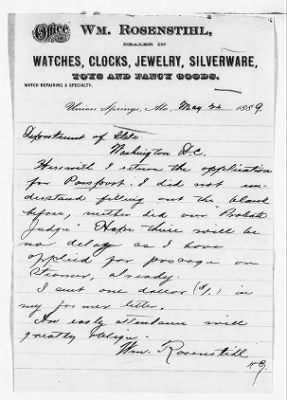 Office of
WM. ROSENSTIHL,
DEALER IN
WATCHES, CLOCKS, JEWELRY, SILVERWARE,
TOYS AND FANCY GOODS.
WATCH REPAIRING A SPECIALTY.
Union Springs, Ala. May 24 1889.
Department of State
Washington D.C.
Herewith I return the application
for Passport. I did not un-
derstand filling out the "blank"
before, neither did our "Probate
Judge" Hope there will be
no delay as I have
applied for passage on
Steamer, already.
I sent one dollar ($1.) in
my former letter.
An early attention will
greatly oblige.
Wm. Rosenstihl